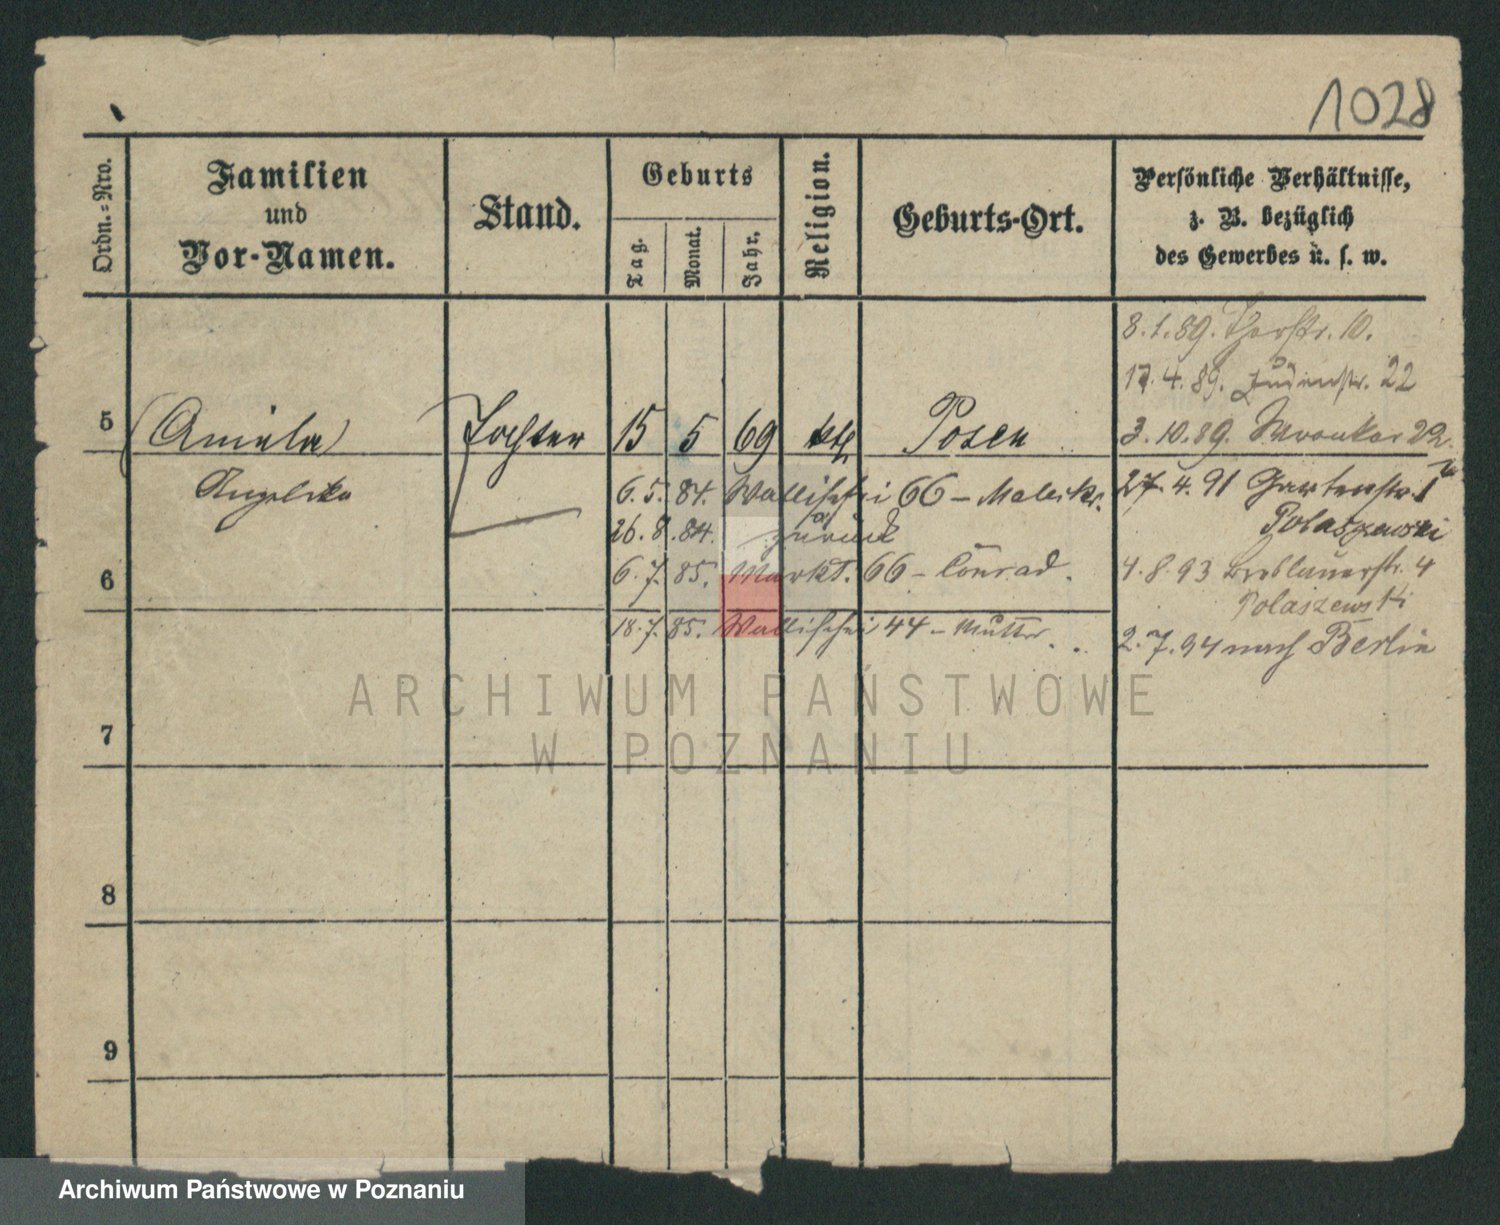 1028
Ordn.-Nro.
Familien
und
Vor-Namen.
Stand.
Geburts
Tag.
Monat.
Jahr.
Religion.
Geburts-Ort.
Persönliche Verhältnisse,
z. B. bezüglich
des Gewerbes u. s. w.
8.1.89. Thorstr. 10.
17.4.89. Judenstr. 22
5 (Aniela) Tochter 15 5 69 kth Posen 3.10.89. Wronker 22
Angelika
6.5.84. Wallischei 66 -
27.4.91 Gartenstr. 1
Polaszewski
26.8.84. zurück
6
6.7.85. Markt. 66 - Conrad.
4.8.93 Breslauerstr. 4
Polaszewski
18.7.85. Wallischei 44 - Mutter.
2.7.94 nach Berlin
ARCHIWUM PAŃSTWOWE
W POZNANIU
7
8
9
Archiwum Państwowe w Poznaniu